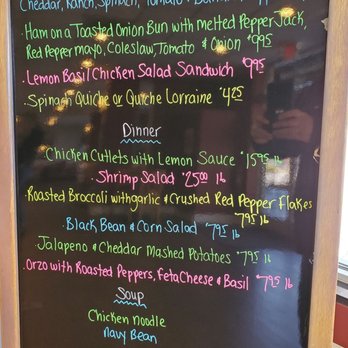 Cheddar, Ranch, Spinach, Tomato &
· Ham on a Toasted Onion Bun with melted Pepper Jack,
Red Pepper mayo, Coleslaw, Tomato & Onion $9.95
· Lemon Basil Chicken Salad Sandwich $9.95
· Spinach Quiche or Quiche Lorraine $4.25
Dinner
Chicken Cutlets with Lemon Sauce $15.95 lb
· Shrimp Salad $25.00 lb
· Roasted Broccoli with garlic & Crushed Red Pepper Flakes
7.95 lb
Black Bean & Corn Salad $7.95 lb
Jalapeno & Cheddar Mashed Potatoes $7.95 lb
· Orzo with Roasted Peppers, Feta Cheese & Basil $7.95 lb
Soup
Chicken Noodle
Navy Bean